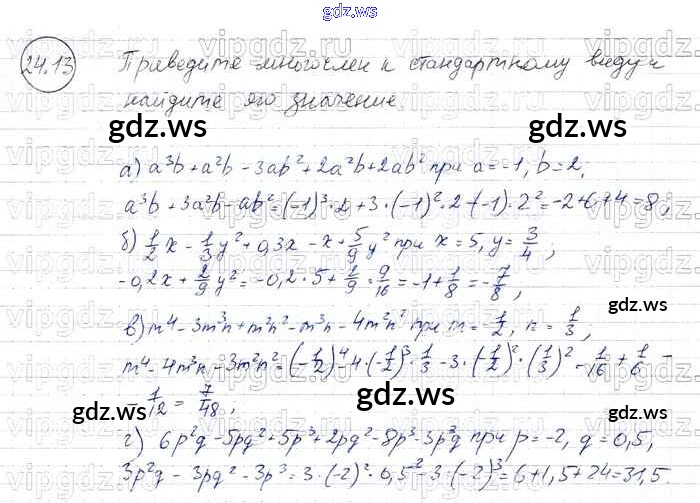 gdz.ws
24.13 Приведите многочлен к стандартному виду и
найдите его значение.
gdz.ws gdz.ws
а) a³b + a²b - 3ab² + 2a²b + 2ab² при a = -1, b = 2,
a³b + 3a²b - ab² = (-1)³·2 + 3·(-1)²·2 - (-1)·2² = -2 + 6 + 4 = 8;
б) 1/2 x - 1/3 y² + 0,3x - x + 5/9 y² при x = 5, y = 3/4;
-0,2x + 2/9 y² = -0,2·5 + 2/9·9/16 = -1 + 1/8 = -7/8;
gdz.ws gdz.ws
в) m⁴ - 3m³n + m²n² - m³n - 4m²n² при m = -1/2, n = 1/3;
m⁴ - 4m³n - 3m²n² = (-1/2)⁴ - 4·(-1/2)³·1/3 - 3·(-1/2)²·(1/3)² = 1/16 + 1/6 -
- 1/12 = 7/48;
gdz.ws gdz.ws
г) 6p²q - 5pq² + 5p³ + 2pq² - 8p³ - 3p²q при p = -2, q = 0,5,
3p²q - 3pq² - 3p³ = 3·(-2)²·0,5 - 3·(-2)³ = 6 + 1,5 + 24 = 31,5.
gdz.ws gdz.ws